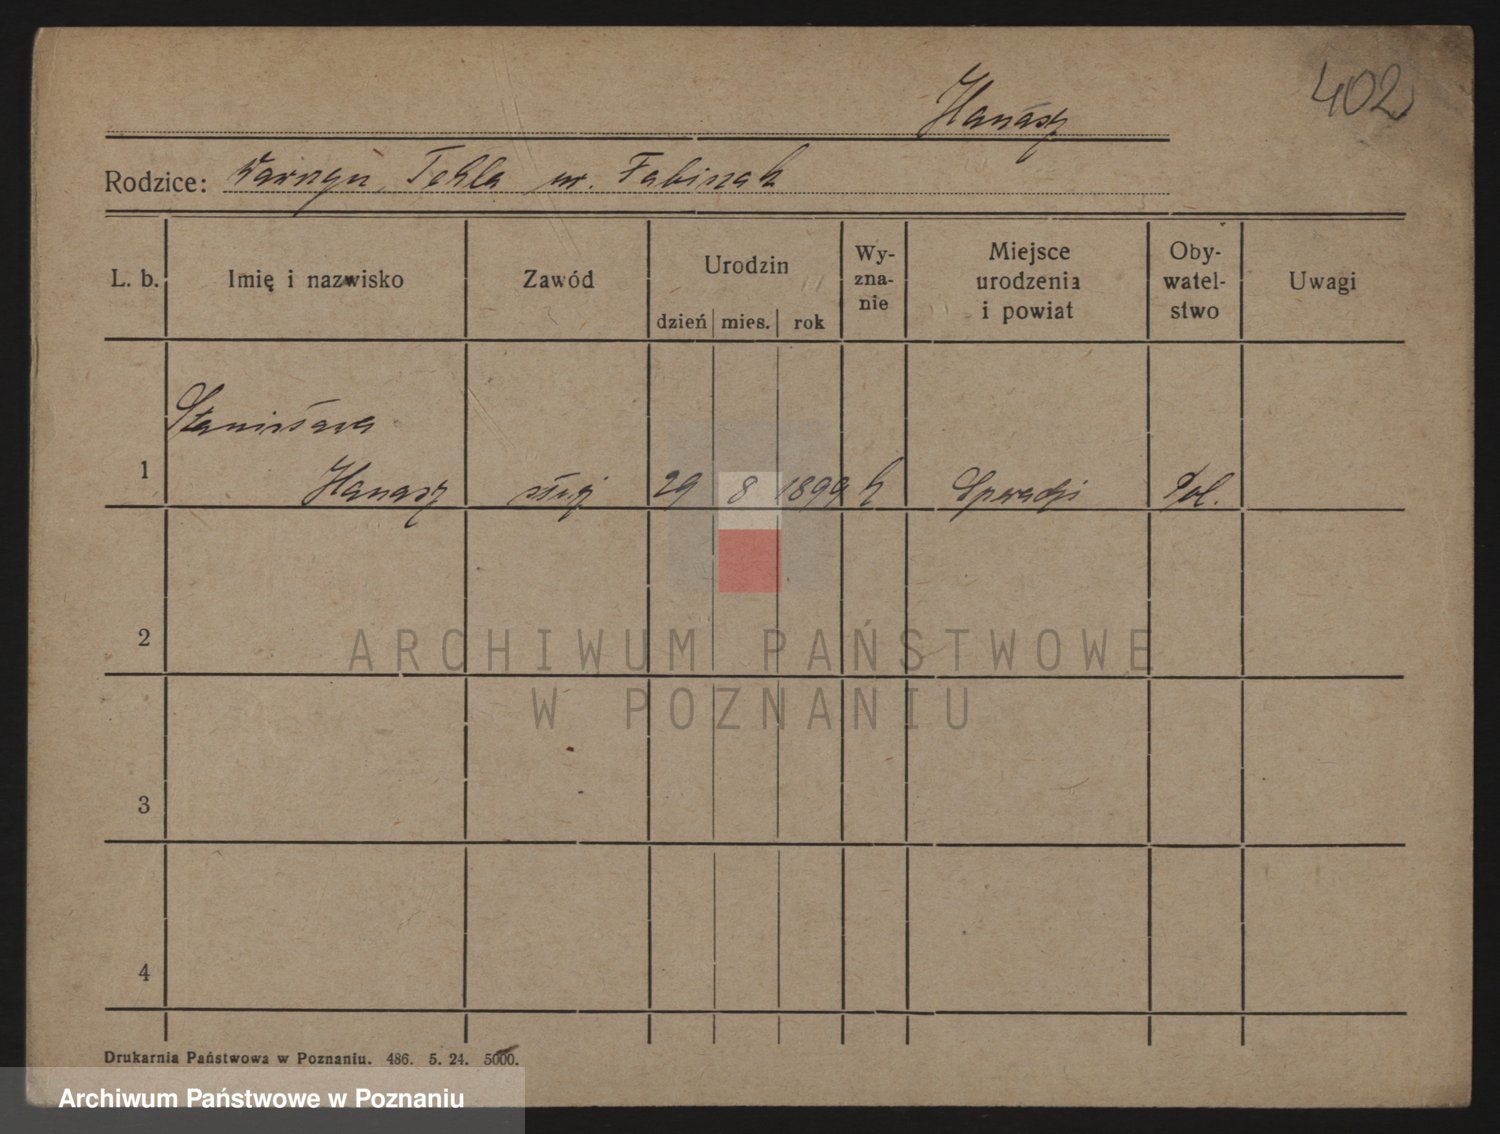 402
Hanasz
Rodzice: Tekla ur. Fabiszak
L. b. Imię i nazwisko Zawód Urodzin dzień mies. rok Wy-
zna-
nie Miejsce
urodzenia
i powiat Oby-
watel-
stwo Uwagi
Stanisława
1 Hanasz 29 8 1899 k Pol.
2
3
4
ARCHIWUM PAŃSTWOWE
W POZNANIU
Drukarnia Państwowa w Poznaniu. 486. 5. 24. 5000.
Archiwum Państwowe w Poznaniu